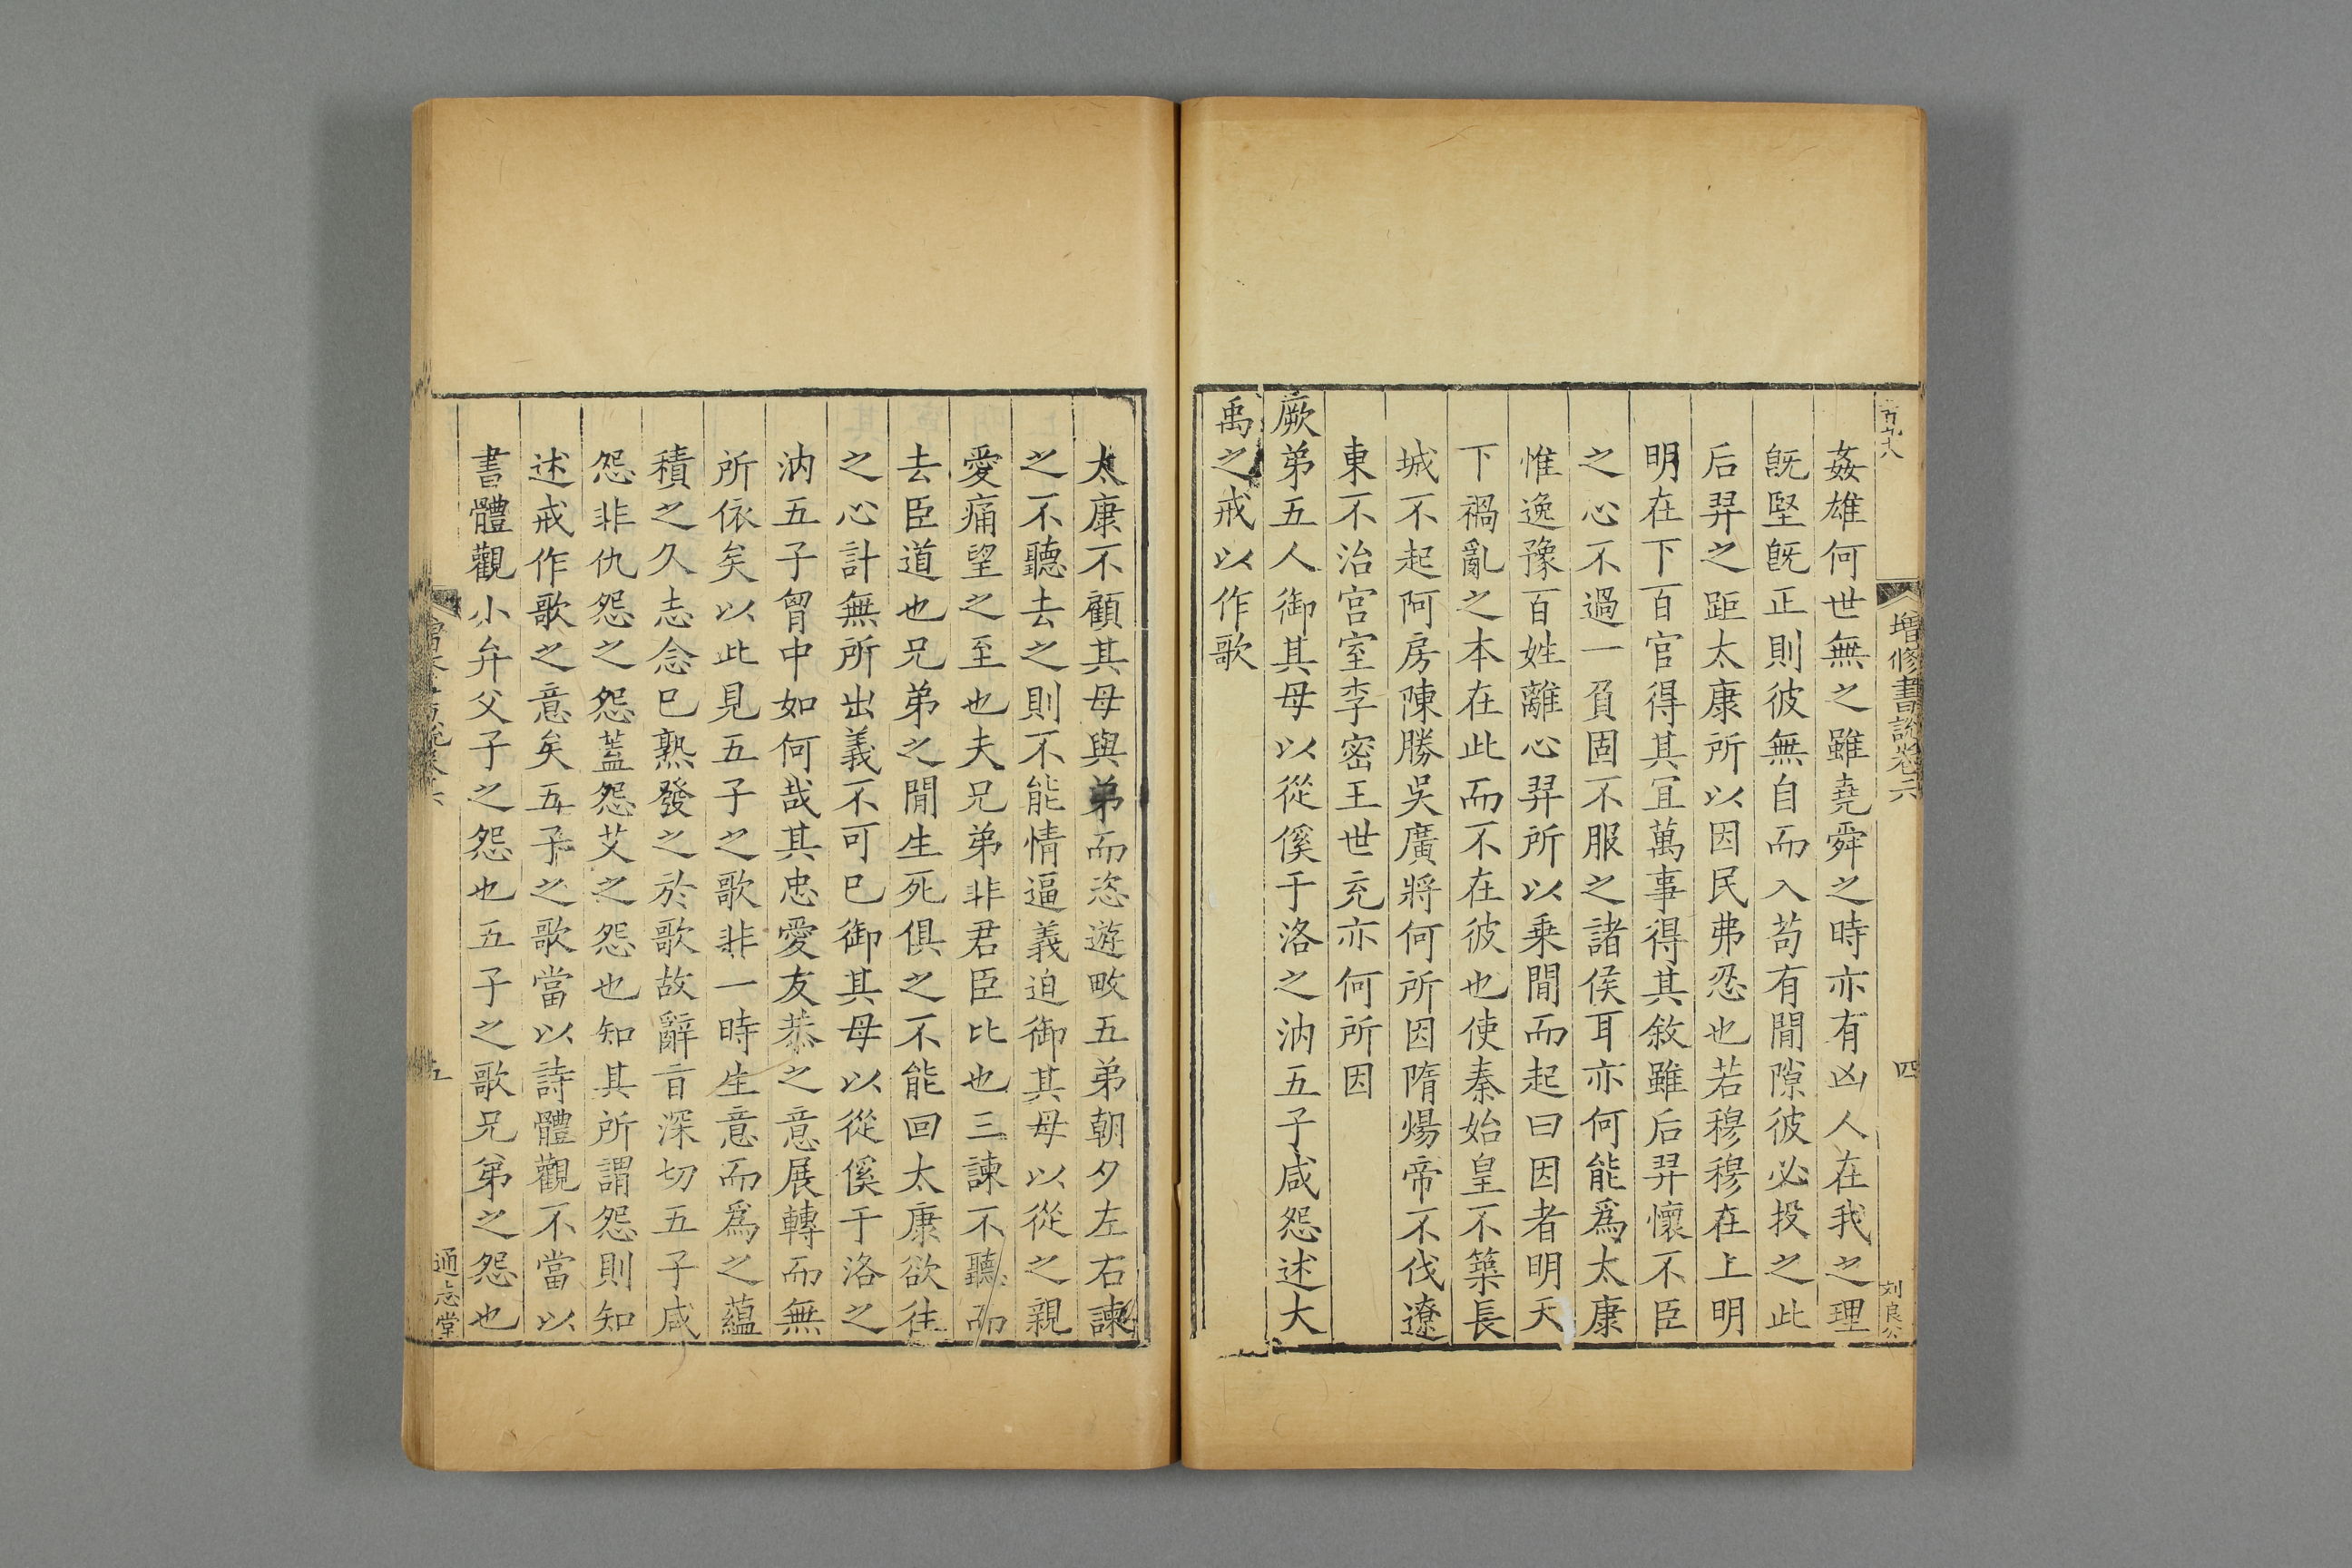 增修書說卷六
四
刘良公
姦雄何世無之雖堯舜之時亦有凶人在我之理
旣堅旣正則彼無自而入苟有閒隙彼必投之此
后羿之距太康所以因民弗忍也若穆穆在上明
明在下百官得其宜萬事得其敘雖后羿懷不臣
之心不過一負固不服之諸侯耳亦何能爲太康
惟逸豫百姓離心羿所以乗閒而起曰因者明天
下禍亂之本在此而不在彼也使秦始皇不築長
城不起阿房陳勝吳廣將何所因隋煬帝不伐遼
東不治宮室李密王世充亦何所因
厥弟五人御其母以從徯于洛之汭五子咸怨述大
禹之戒以作歌
太康不顧其母與弟而恣遊畋五弟朝夕左右諫
之不聽去之則不能情逼義迫御其母以從之親
愛痛望之至也夫兄弟非君臣比也三諫不聽而
去臣道也兄弟之閒生死俱之不能回太康欲往
之心計無所出義不可已御其母以從徯于洛之
汭五子胷中如何哉其忠愛友恭之意展轉而無
所依矣以此見五子之歌非一時生意而爲之蘊
積之久志念已熟發之於歌故辭旨深切五子咸
怨非仇怨之怨蓋怨艾之怨也知其所謂怨則知
述戒作歌之意矣五子之歌當以詩體觀不當以
書體觀小弁父子之怨也五子之歌兄弟之怨也
五
通志堂